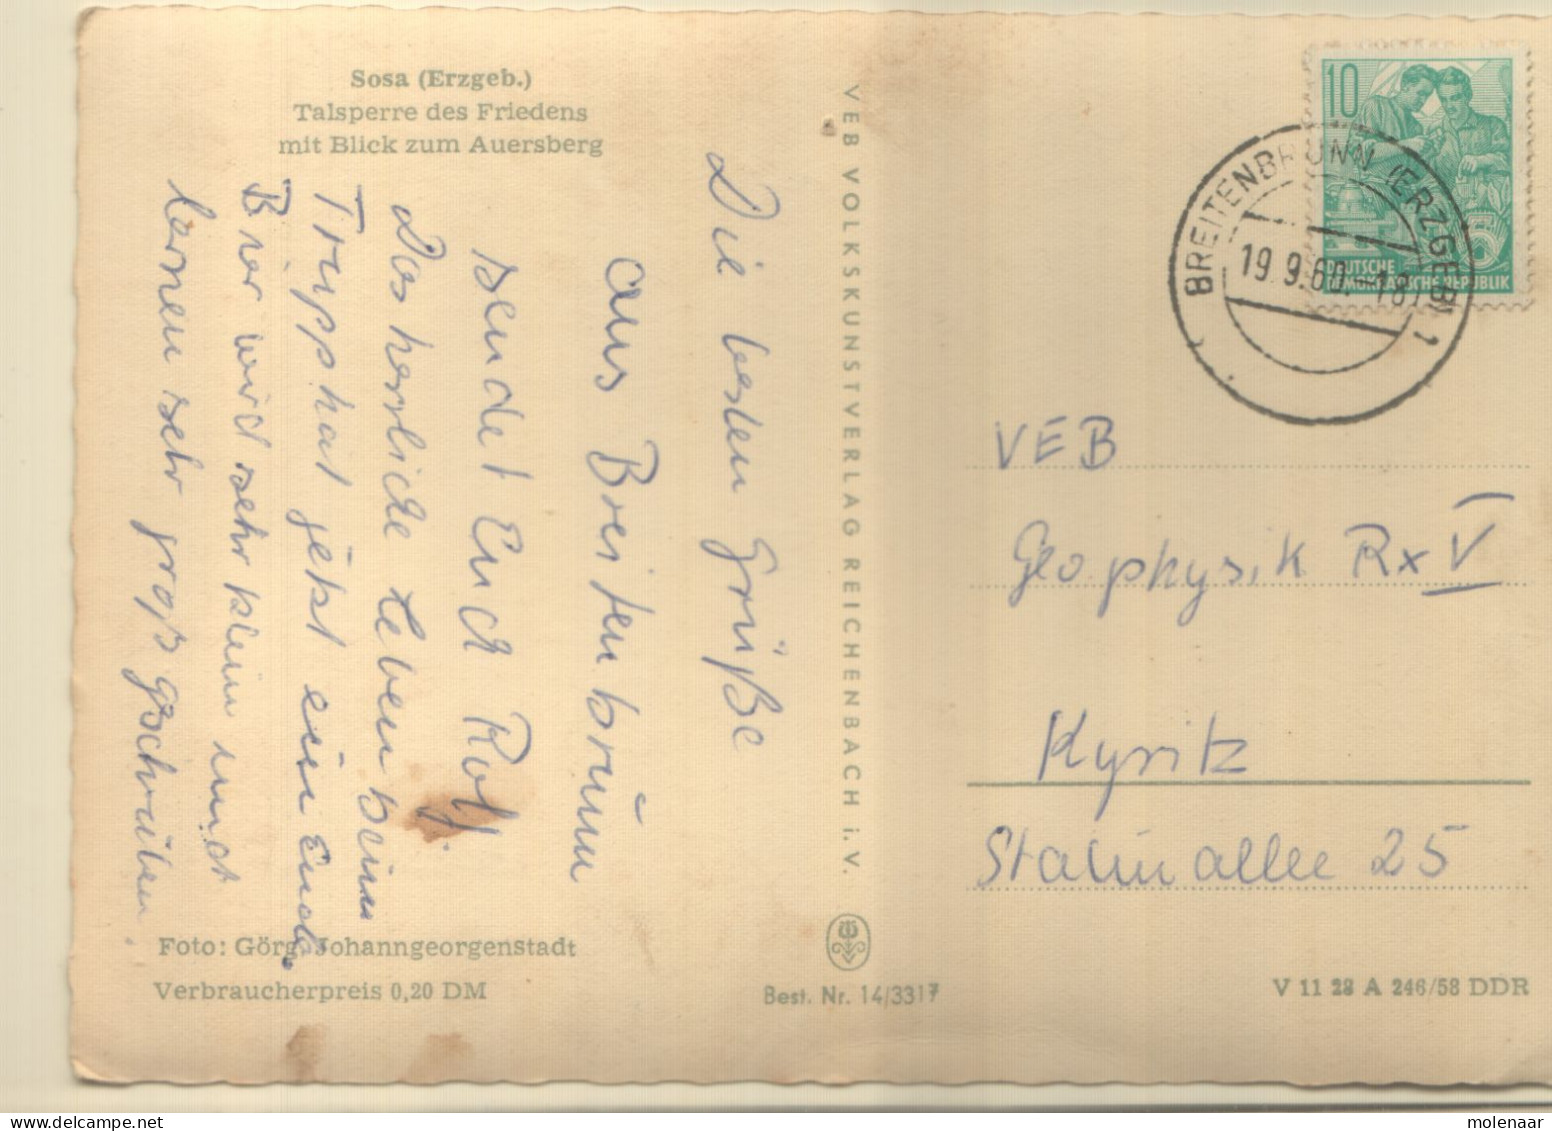 Sosa (Erzgeb.)
Talsperre des Friedens
mit Blick zum Auersberg
Die besten Grüße
aus Breitenbrunn
sendet Euch Rolf.
Das herrliche Leben beim
Trupp hat jetzt ein Ende.
Bier wird sehr klein und
lernen sehr groß geschrieben.
Foto: Görg, Johanngeorgenstadt
Verbraucherpreis 0,20 DM
VEB VOLKSKUNSTVERLAG REICHENBACH i. V.
Best. Nr. 14/3317
10
5
DEUTSCHE
DEMOKRATISCHE REPUBLIK
BREITENBRUNN (ERZGEB) 1
19.9.60.-18
VEB
Geophysik Rx V
Kyritz
Stalinallee 25
V 11 28 A 246/58 DDR
molenaar